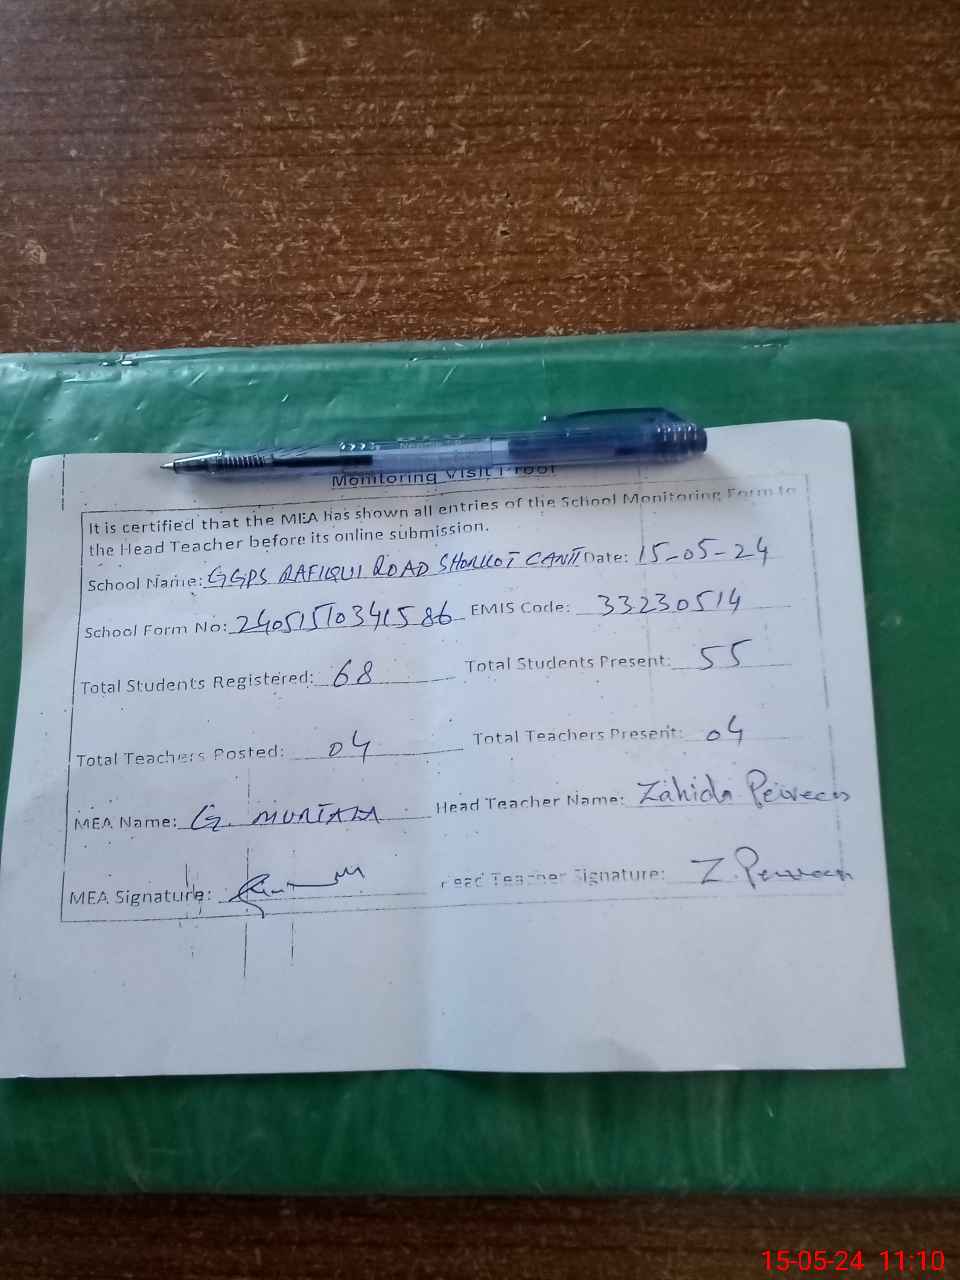 Monitoring Visit Proof
It is certified that the MEA has shown all entries of the School Monitoring Form to
the Head Teacher before its online submission.
School Name: GGPS RAFIQUI ROAD SHORKOT CANTT Date: 15-05-24
School Form No: 24051510341586 EMIS Code: 33230514
Total Students Registered: 68 Total Students Present: 55
Total Teachers Posted: 04 Total Teachers Present: 04
MEA Name: G. MURTAZA Head Teacher Name: Zahida Perveen
MEA Signature: Head Teacher Signature: Z. Perveen
15-05-24 11:10